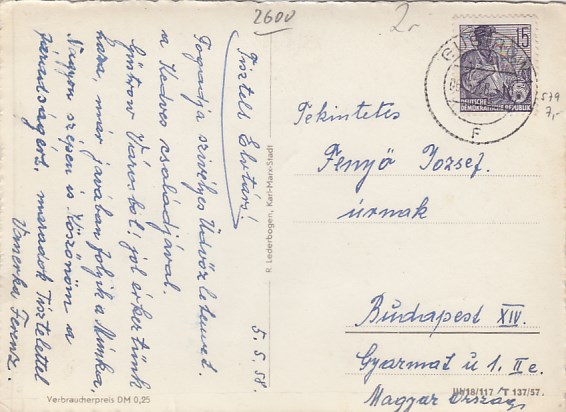 2600
2.-
Tisztelt Elvtárs!
5.5.58.
Fogadja szivélyes Üdvözletemet
a Kedves családjával.
Güstrow Városból! jól érkeztünk
haza, már javában folyik a Munka.
Nagyon szépen is Köszönöm a
fáradságért. maradok Tisztelettel
Vmerka Ferenc.
Verbraucherpreis DM 0,25
R. Lederbogen, Karl-Marx-Stadt
15
DEUTSCHE
DEMOKRATISCHE REPUBLIK
F
579
7,-
Tekintetes
Fenyő Iozsef.
úrnak
Budapest XIV.
Gyarmat ú 1. II e.
Magyar Ország
III/18/117 T 137/57.